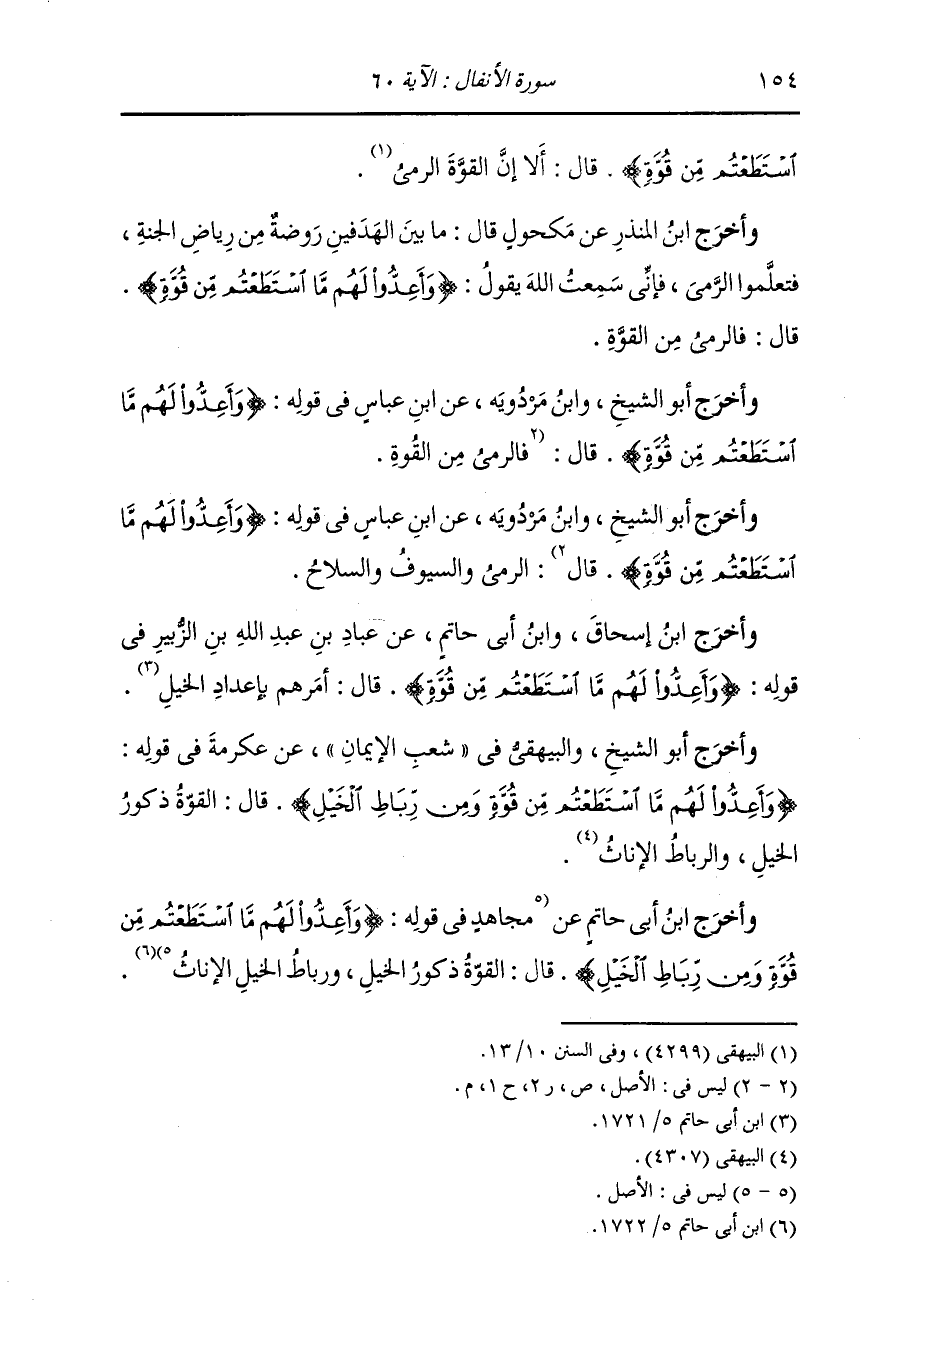 ١٥٤ سورة الأنفال : الآية ٦٠
ٱسْتَطَعْتُم مِّن قُوَّةٍ﴾ . قال : أَلا إنَّ القوَّةَ الرمىُ(١) .
وأخرَج ابنُ المنذرِ عن مَكحولٍ قال : ما بينَ الهَدَفينِ رَوضةٌ مِن رِياضِ الجنةِ ،
فتعلَّموا الرَّمىَ ، فإنِّى سَمِعتُ اللهَ يقولُ : ﴿وَأَعِدُّوا۟ لَهُم مَّا ٱسْتَطَعْتُم مِّن قُوَّةٍ﴾ .
قال : فالرمىُ مِن القوَّةِ .
وأخرَج أبو الشيخِ ، وابنُ مَرْدُويَه ، عن ابنِ عباسٍ فى قولِه : ﴿وَأَعِدُّوا۟ لَهُم مَّا
ٱسْتَطَعْتُم مِّن قُوَّةٍ﴾ . قال : (٢فالرمىُ مِن القُوةِ .
وأخرَج أبو الشيخِ ، وابنُ مَرْدُويَه ، عن ابنِ عباسٍ فى قولِه : ﴿وَأَعِدُّوا۟ لَهُم مَّا
ٱسْتَطَعْتُم مِّن قُوَّةٍ﴾ . قال٢) : الرمىُ والسيوفُ والسلاحُ .
وأخرَج ابنُ إسحاقَ ، وابنُ أبى حاتمٍ ، عن عبادِ بنِ عبدِ اللهِ بنِ الزُّبيرِ فى
قولِه : ﴿وَأَعِدُّوا۟ لَهُم مَّا ٱسْتَطَعْتُم مِّن قُوَّةٍ﴾ . قال : أمَرهم بإعدادِ الخيلِ(٣) .
وأخرَج أبو الشيخِ ، والبيهقىُّ فى « شعبِ الإيمانِ » ، عن عكرمةَ فى قولِه :
﴿وَأَعِدُّوا۟ لَهُم مَّا ٱسْتَطَعْتُم مِّن قُوَّةٍ وَمِن رِّبَاطِ ٱلْخَيْلِ﴾ . قال : القوّةُ ذكورُ
الخيلِ ، والرباطُ الإناثُ(٤) .
وأخرَج ابنُ أبى حاتمٍ عن (٥مجاهدٍ فى قولِه : ﴿وَأَعِدُّوا۟ لَهُم مَّا ٱسْتَطَعْتُم مِّن
قُوَّةٍ وَمِن رِّبَاطِ ٱلْخَيْلِ﴾ . قال : القوّةُ ذكورُ الخيلِ ، ورباطُ الخيلِ الإناثُ٥)(٦) .
(١) البيهقى (٤٢٩٩) ، وفى السنن ١٠/ ١٣.
(٢ - ٢) ليس فى : الأصل ، ص ، ر ٢، ح ١، م .
(٣) ابن أبى حاتم ٥/ ١٧٢١.
(٤) البيهقى (٤٣٠٧) .
(٥ - ٥) ليس فى : الأصل .
(٦) ابن أبى حاتم ٥/ ١٧٢٢.